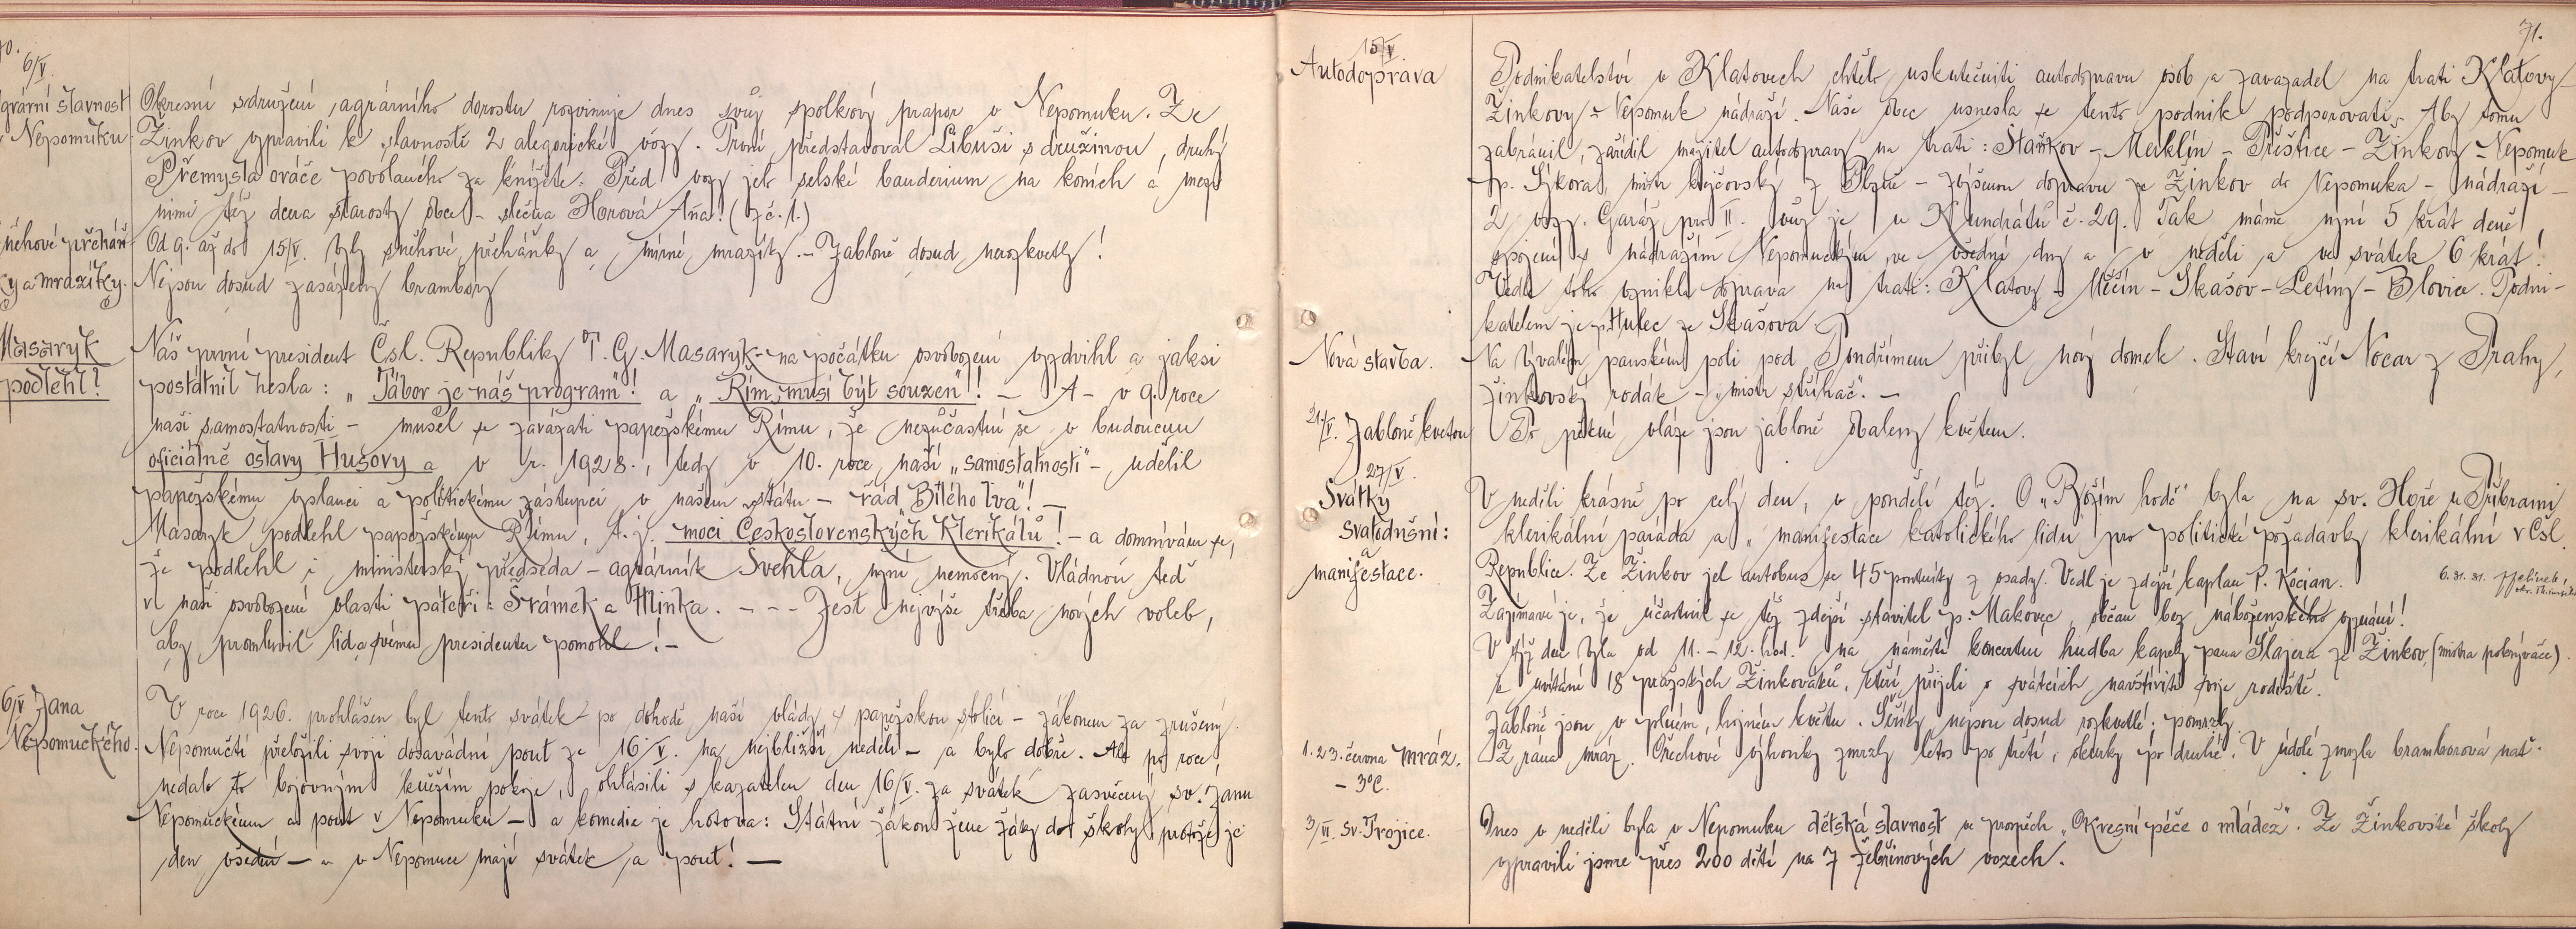 70.
6/V.
Agrární slavnost
v Nepomuku
Okresní sdružení agrárního dorostu rozvinuje dnes svůj spolkový prapor v Nepomuku. Ze
Žinkov vypravili k slavnosti 2 alegorické vozy. První představoval Libuši s družinou, druhý
Přemysla oráče povolaného za knížete. Před vozy jelo selské banderium na koních a mezi
nimi též dcera starosty obce - slečna Horová Aňa! (z č. 1.)
Sněhové přeháň-
ky a mrazíky.
Od 9. až do 15/V. byly sněhové přeháňky a mírné mrazíky. - Jabloně dosud nerozkvetly!
Nejsou dosud zasázeny brambory
Masaryk
podlehl!
Náš první president Čsl. Republiky T. G. Masaryk - na počátku osvobození vyzdvihl a jaksi
postátnil hesla: „Tábor je náš program"! a „Řím musí být souzen"! - A - v 9. roce
naší samostatnosti - musel se zavázati papežskému Římu, že nezúčastní se v budoucnu
oficiálně oslavy Husovy a v r. 1928., tedy v 10. roce naší „samostatnosti" - udělil
papežskému vyslanci a politickému zástupci v našem státu - řád „Bílého lva"! -
Masaryk podlehl papežskému Římu, t. j. moci Československých Klerikálů! - a domnívám se,
že podlehl i ministerský předseda - agrárník Švehla, nyní nemocný. Vládnou teď
v naší osvobozené vlasti páteři: Šrámek a Hlinka. - - - Jest nejvýše třeba nových voleb,
aby promluvil lid a svému presidentu pomohl! -
6/V Jana
Nepomuckého.
V roce 1926. prohlášen byl tento svátek - po dohodě naší vlády s papežskou stolicí - zákonem za zrušený.
Nepomučtí přeložili svoji dosavádní pout ze 16/V. na nejbližší neděli - a bylo dobře. Ale po roce
nedalo to bojovným kněžím pokoje, ohlásili s kazatelen den 16/V. za svátek zasvěcený sv. Janu
Nepomuckému a pout v Nepomuku - a komedie je hotova: Státní zákon žene žáky do školy, protože je
den všední - a v Nepomuce mají svátek a pout! -
71.
15/V.
Autodoprava
Podnikatelství v Klatovech chtělo uskutečniti autodopravu osob a zavazadel na trati Klatovy -
Žinkovy - Nepomuk nádraží. Naše obec usnesla se tento podnik podporovati. Aby tomu
zabránil, zařídil majitel autodopravy na trati: Staňkov - Merklín - Přeštice - Žinkovy - Nepomuk
p. Sýkora, mistr krejčovský z - zvýšenou dopravu ze Žinkov do Nepomuka - nádraží -
2 vozy. Garáž pro II. vůz je u Kundrátů č. 29. Tak máme nyní 5 krát denně
spojení s nádražím Nepomuckým ve všední dny a v neděli a ve svátek 6 krát!
Vedle toho vznikla doprava na trati: Klatovy - Měčín - Skašov - Letiny - Blovice. Podni-
katelem je p. Hutec ze Skašova.
Nová stavba.
Na bývalém panském poli pod Vondřímem přibyl nový domek. Staví krejčí Nocar z Prahy,
žinkovský rodák - „mistr střihač". -
21/V. Jabloně kvetou
Po pěkné vláze jsou jabloně obaleny květem.
27/V.
Svátky
svatodušní:
a
manifestace.
V neděli krásně po celý den, v pondělí též. O „Božím hodě" byla na sv. Hoře u Příbrami
klerikální paráda a „manifestace katolického lidu pro politické požadavky klerikální v Čsl.
Republice. Ze Žinkov jel autobus se 45 poutníky z osady. Vedl je zdejší kaplan P. Kocian.
6. 31. 31. Jelínek,
Zajímavé je, že účastnil se též zdejší stavitel p. Makovec, občan bez náboženského vyznání!
V týž den byla od 11. - 12. hod. na náměstí koncertní hudba kapely pana Šlajera ze Žinkov, (mistra pokrývače).
k uvítání 18 pražských Žinkováků, kteří přijeli o svátcích navštíviti svoje rodiště.
Jabloně jsou v plném, hojném květu. Šeříky nejsou dosud rozkvetlé: pomrzly
1. 2. 3. června mráz.
- 3°C.
Z rána mráz. Ořechové výhonky zmrzly letos po třetí, okurky po druhé. V údolí zmrzla bramborová nať.
3/VI. Sv. Trojice.
Dnes v neděli byla v Nepomuku dětská slavnost ve prospěch „Okresní péče o mládež". Ze Žinkovské školy
vypravili jsme přes 200 dětí na 7 žebřinových vozech.